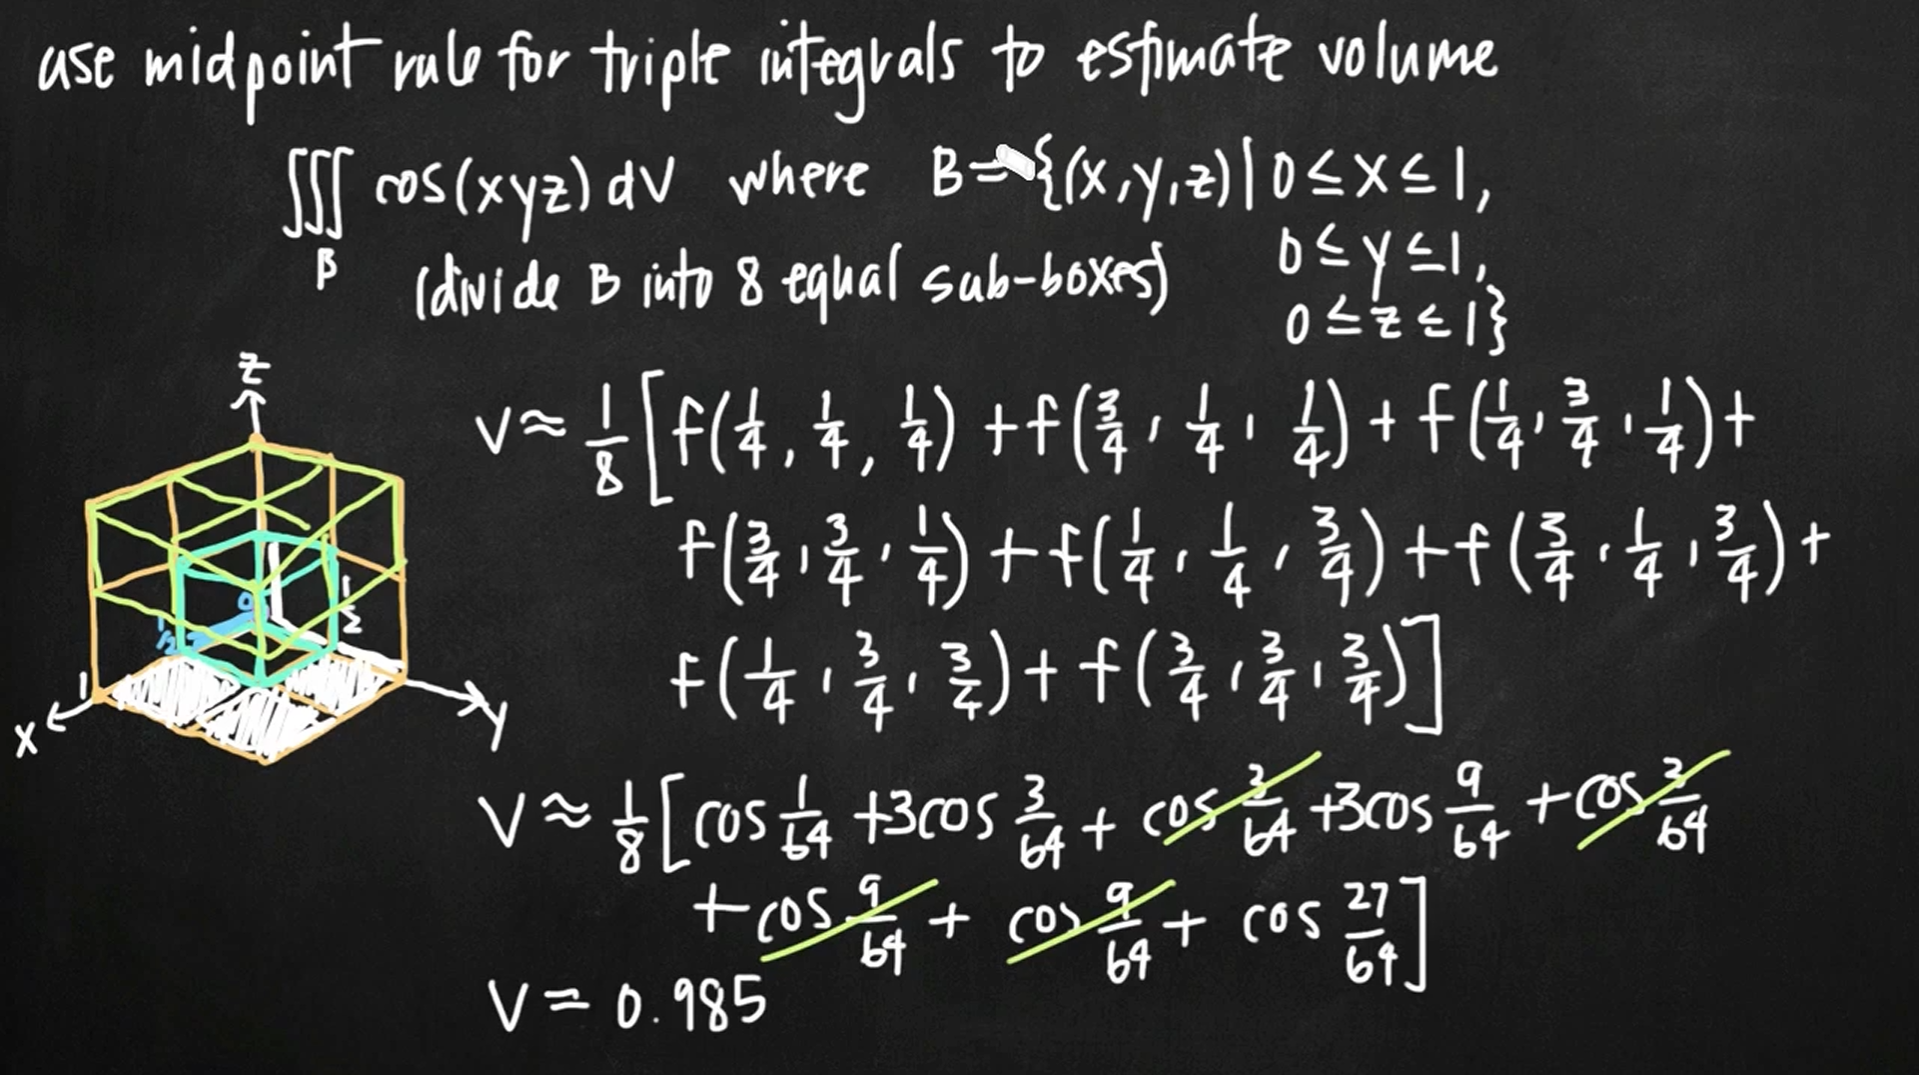 use midpoint rule for triple integrals to estimate volume
∭_B cos(xyz) dV where B = {(x,y,z) | 0 ≤ x ≤ 1,
0 ≤ y ≤ 1,
(divide B into 8 equal sub-boxes)
0 ≤ z ≤ 1}
z
V ≈ 1/8 [f(1/4, 1/4, 1/4) + f(3/4, 1/4, 1/4) + f(1/4, 3/4, 1/4) +
f(3/4, 3/4, 1/4) + f(1/4, 1/4, 3/4) + f(3/4, 1/4, 3/4) +
0
1/2
1/2
f(1/4, 3/4, 3/4) + f(3/4, 3/4, 3/4)]
1
x
y
V ≈ 1/8 [cos 1/64 + 3cos 3/64 + cos 3/64 + 3cos 9/64 + cos 3/64
+ cos 9/64 + cos 9/64 + cos 27/64]
V = 0.985